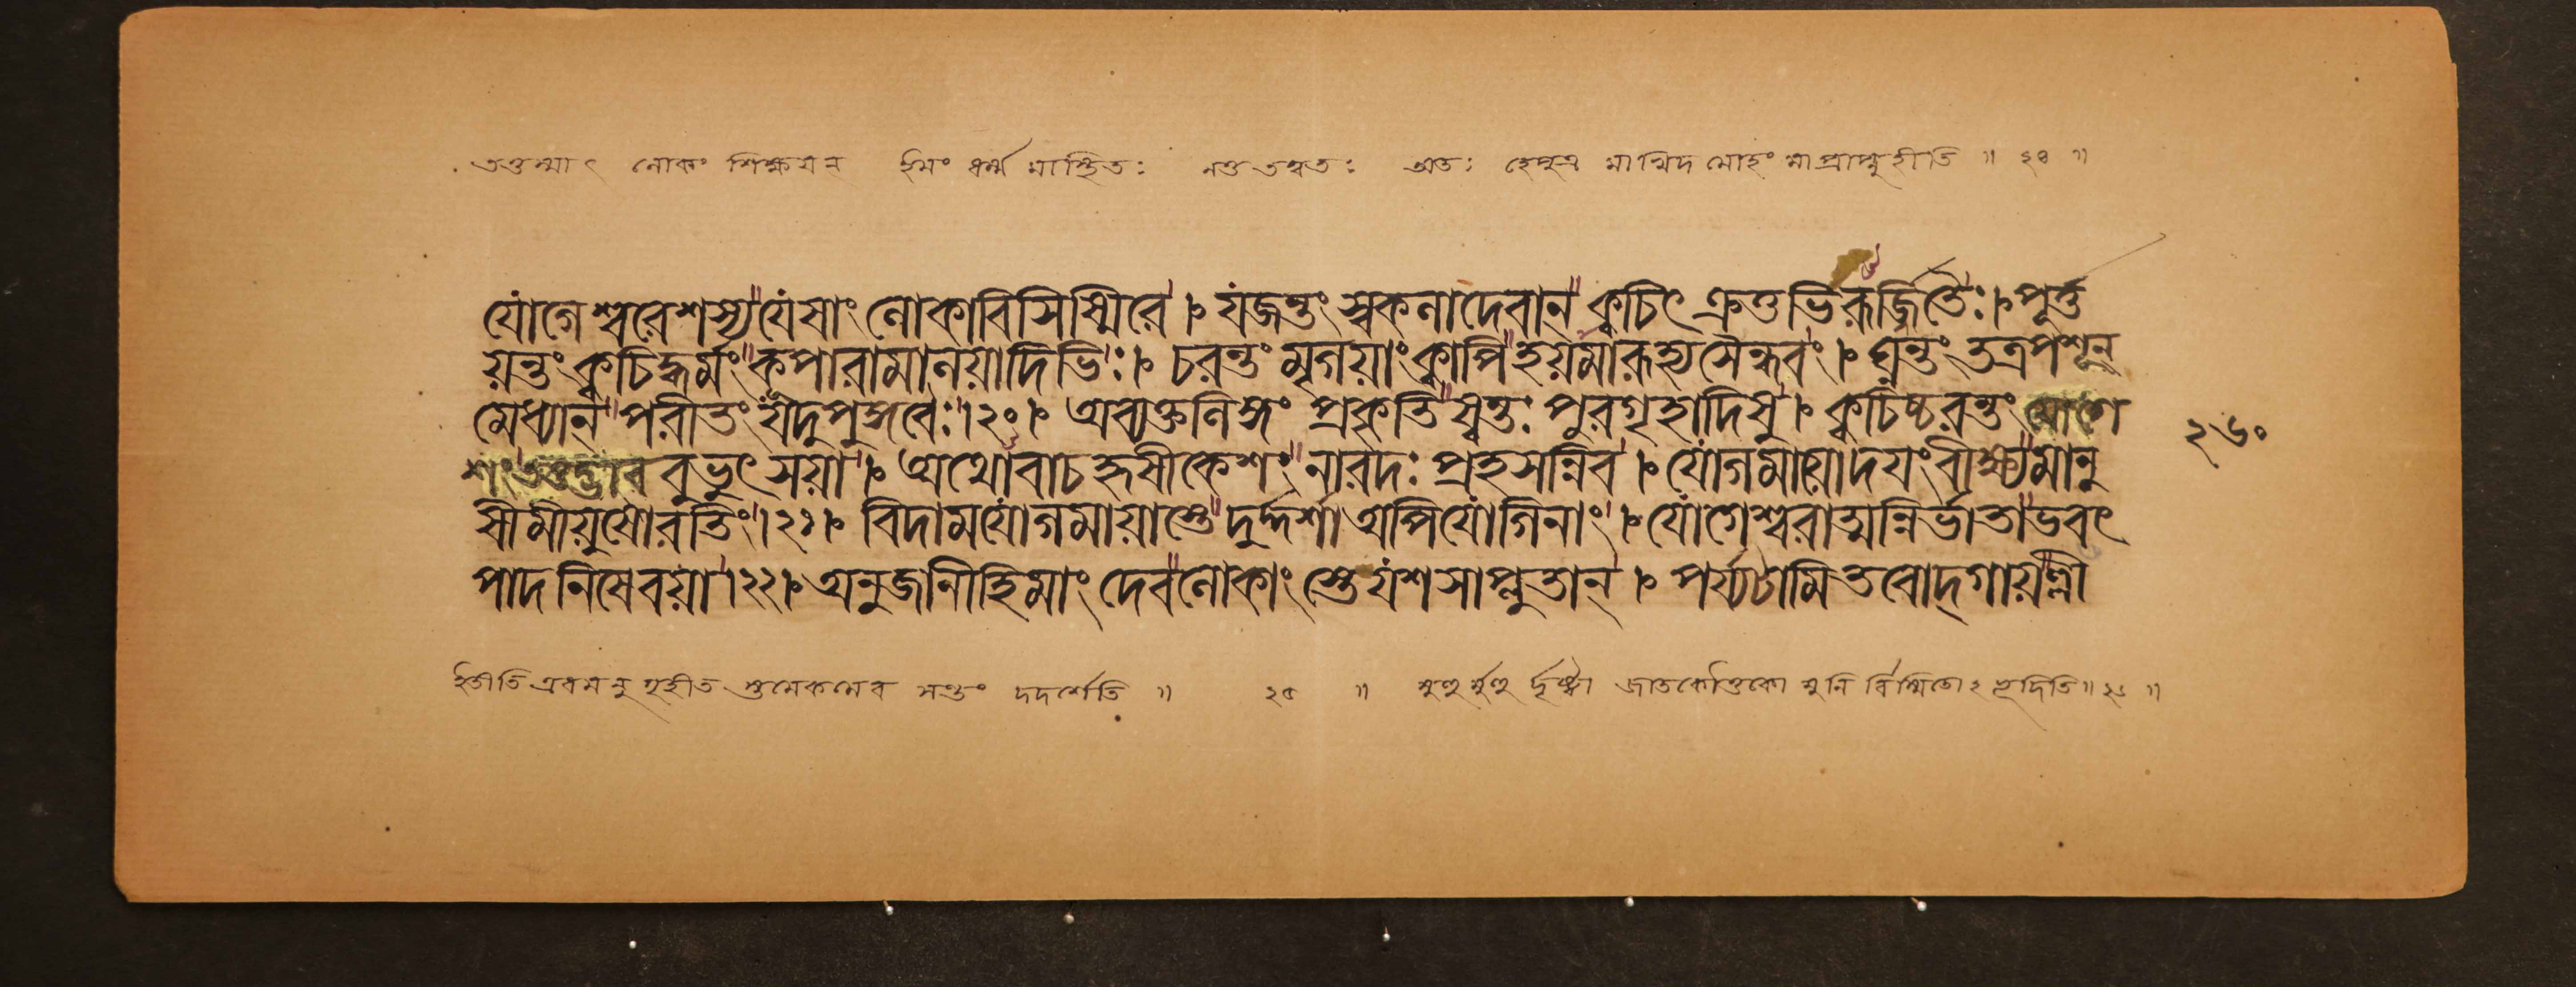 তত্তস্মাৎ লোকং শিক্ষয়ন্ ইমং ধর্ম্মমাস্থিতঃ নতু তত্বতঃ অতঃ হেপুত্র মাখিদ মোহং মাপ্রাপ্নুহীতি ॥
যোগেশ্বরেশস্য যেষাং লোকাবিসিস্মিরে । যজন্তং স্বকলাদেবান্ ক্বচিৎ ক্রতুভিরূর্জ্জিতৈঃ । পূর্ত্ত
য়ন্তং ক্বচিদ্ধর্মং কূপারামালয়াদিভিঃ । চরন্তং মৃগয়াং ক্বাপি হয়মারূহ্য সৈন্ধবং । ঘ্নন্তং তত্রপশূন্
মেধ্যান্ পরীতং যদুপুঙ্গবৈঃ ।২০। অব্যক্তলিঙ্গং প্রকৃতিস্বন্তঃ পুরগৃহাদিষু । ক্বচিচ্চরন্তং যোগে
২৬০
শং তত্তদ্ভাব বুভুৎসয়া । অথোবাচ হৃষীকেশং নারদঃ প্রহসন্নিব । যোগমায়োদয়ং বীক্ষ্য মানু
ষীমীয়ুষোরতিং ।২১। বিদামযোগমায়াস্তে দুর্দ্দর্শা অপিযোগিনাং । যোগেশ্বরাত্মন্নির্ভাতাভবৎ
পাদনিষেবয়া ।২২। অনুজানীহিমাং দেবলোকাংস্তে যশসাপ্লুতান্ । পর্য্যটামি তবোদ্গায়ল্লী
ইতীতি এবমনুগৃহীত মেকমেব সন্তং দদর্শেতি ॥ ২৫ ॥ মুহুর্মুহুর্দৃষ্ট্বা জাতকৌতুকো মুনির্বিস্মিতোঽভূদিতি ॥